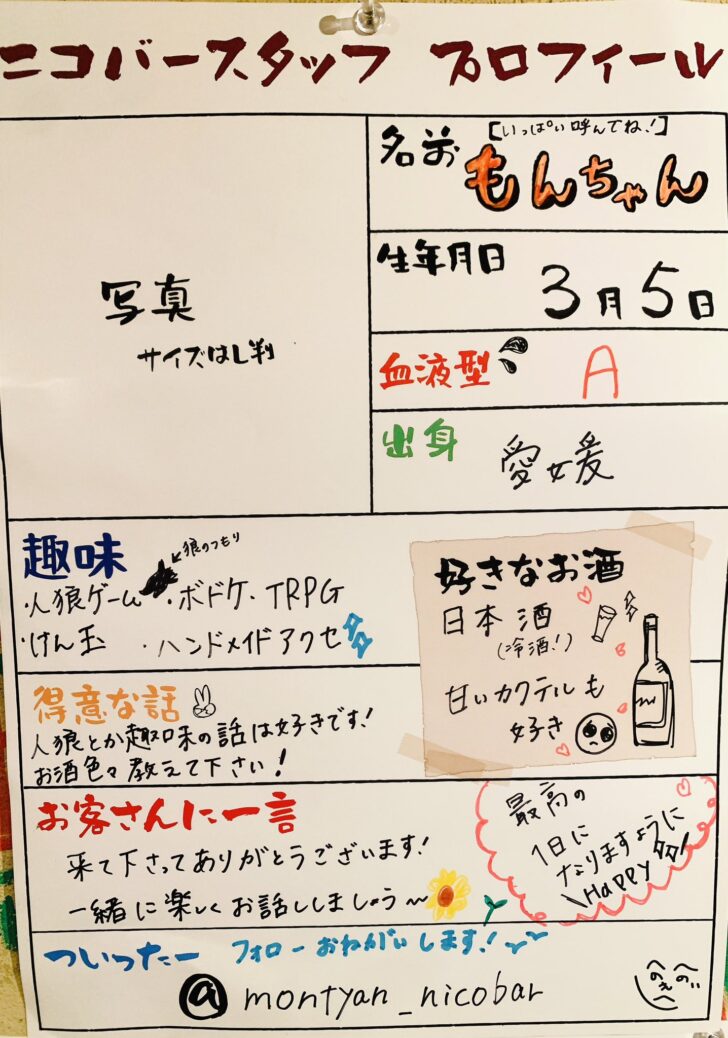 ニコバースタッフ プロフィール
名前
[いっぱい呼んでね!]
もんちゃん
写真
サイズはL判
生年月日
3月5日
血液型
A
出身
愛媛
趣味
狼のつもり
・人狼ゲーム ・ボドゲ・TRPG
・けん玉 ・ハンドメイドアクセ
好きなお酒
日本酒
(冷酒!)
甘いカクテルも
好き
得意な話
人狼とか趣味の話は好きです!
お酒色々教えて下さい!
お客さんに一言
来て下さってありがとうございます!
一緒に楽しくお話ししましょう~
最高の
1日に
なりますように
\Happy/
ついったー フォローおねがいします!
@montyan_nicobar